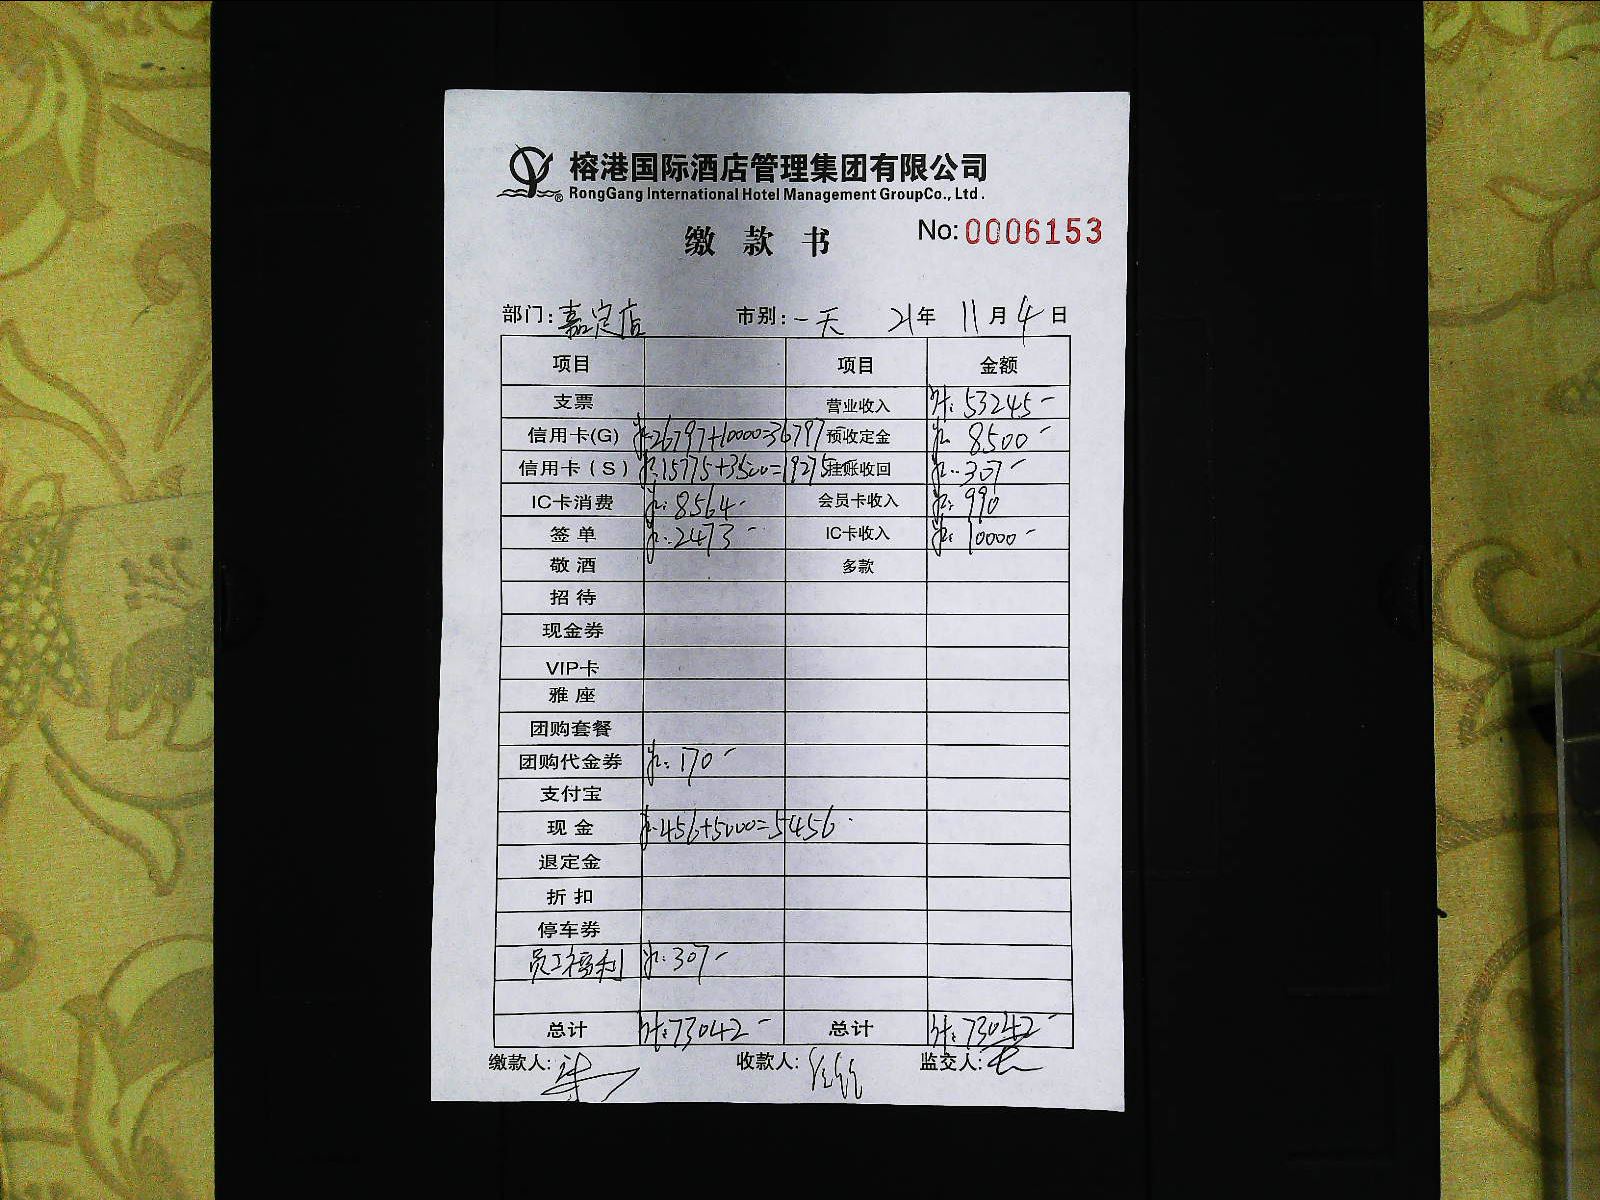 榕港国际酒店管理集团有限公司
RongGang International Hotel Management GroupCo., Ltd.
缴款书 No:0006153
部门:嘉定店 市别:一天 21年 11月 4日
项目 项目 金额
支票 营业收入 计:53245-
信用卡(G) 26797+10000=36797 预收定金 8500-
信用卡(S) 15775+3500=19275 挂账收回 307-
IC卡消费 8564- 会员卡收入 990
签单 2473- IC卡收入 10000-
敬酒 多款
招待
现金券
VIP卡
雅座
团购套餐
团购代金券 170-
支付宝
现金 456+5000=5456
退定金
折扣
停车券
员工福利 307-
总计 计:73042- 总计 计:73042-
缴款人: 收款人: 监交人: